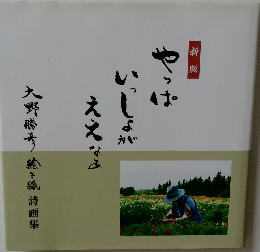 新版
やっぱ
いっしょが
ええなあ
大野勝彦 絵と織 詩画集